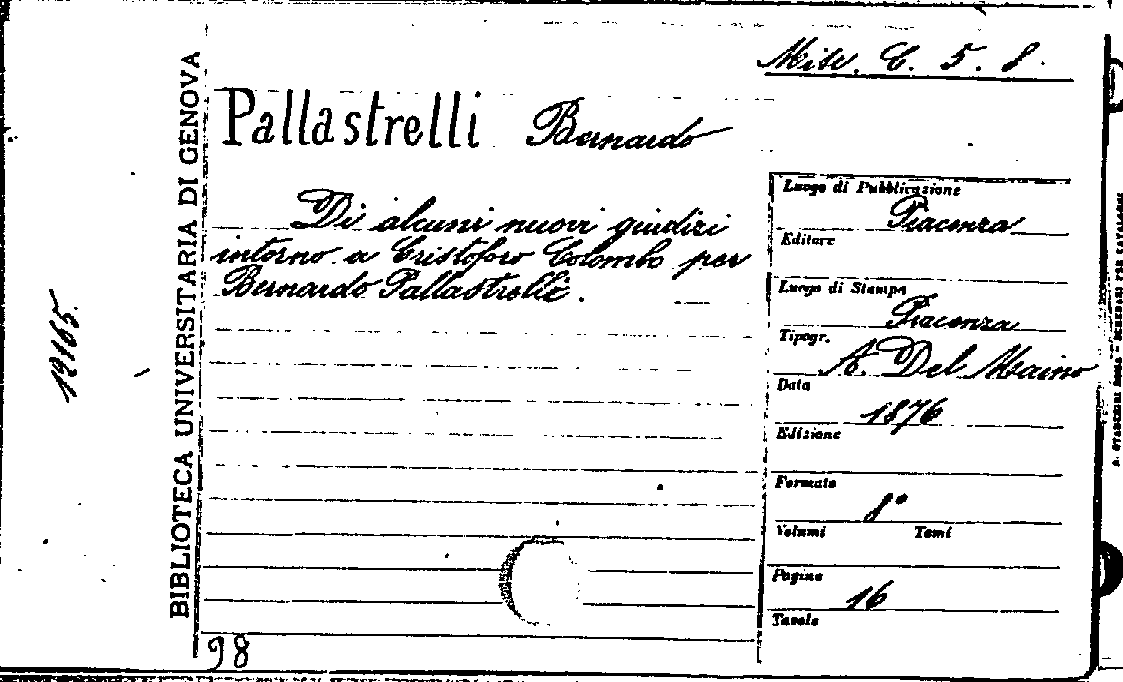 Misc. C. 5. 8.
Pallastrelli Bernardo
Di alcuni nuovi giudizi
intorno a Cristoforo Colombo per
Bernardo Pallastrelli.
Luogo di Pubblicazione
Piacenza
Editore
Luogo di Stampa
Piacenza
Tipogr.
A. Del Maino
Data
1876
Edizione
Formato
8°
Volumi Tomi
Pagine
16
Tavole
98
BIBLIOTECA UNIVERSITARIA DI GENOVA
19165.